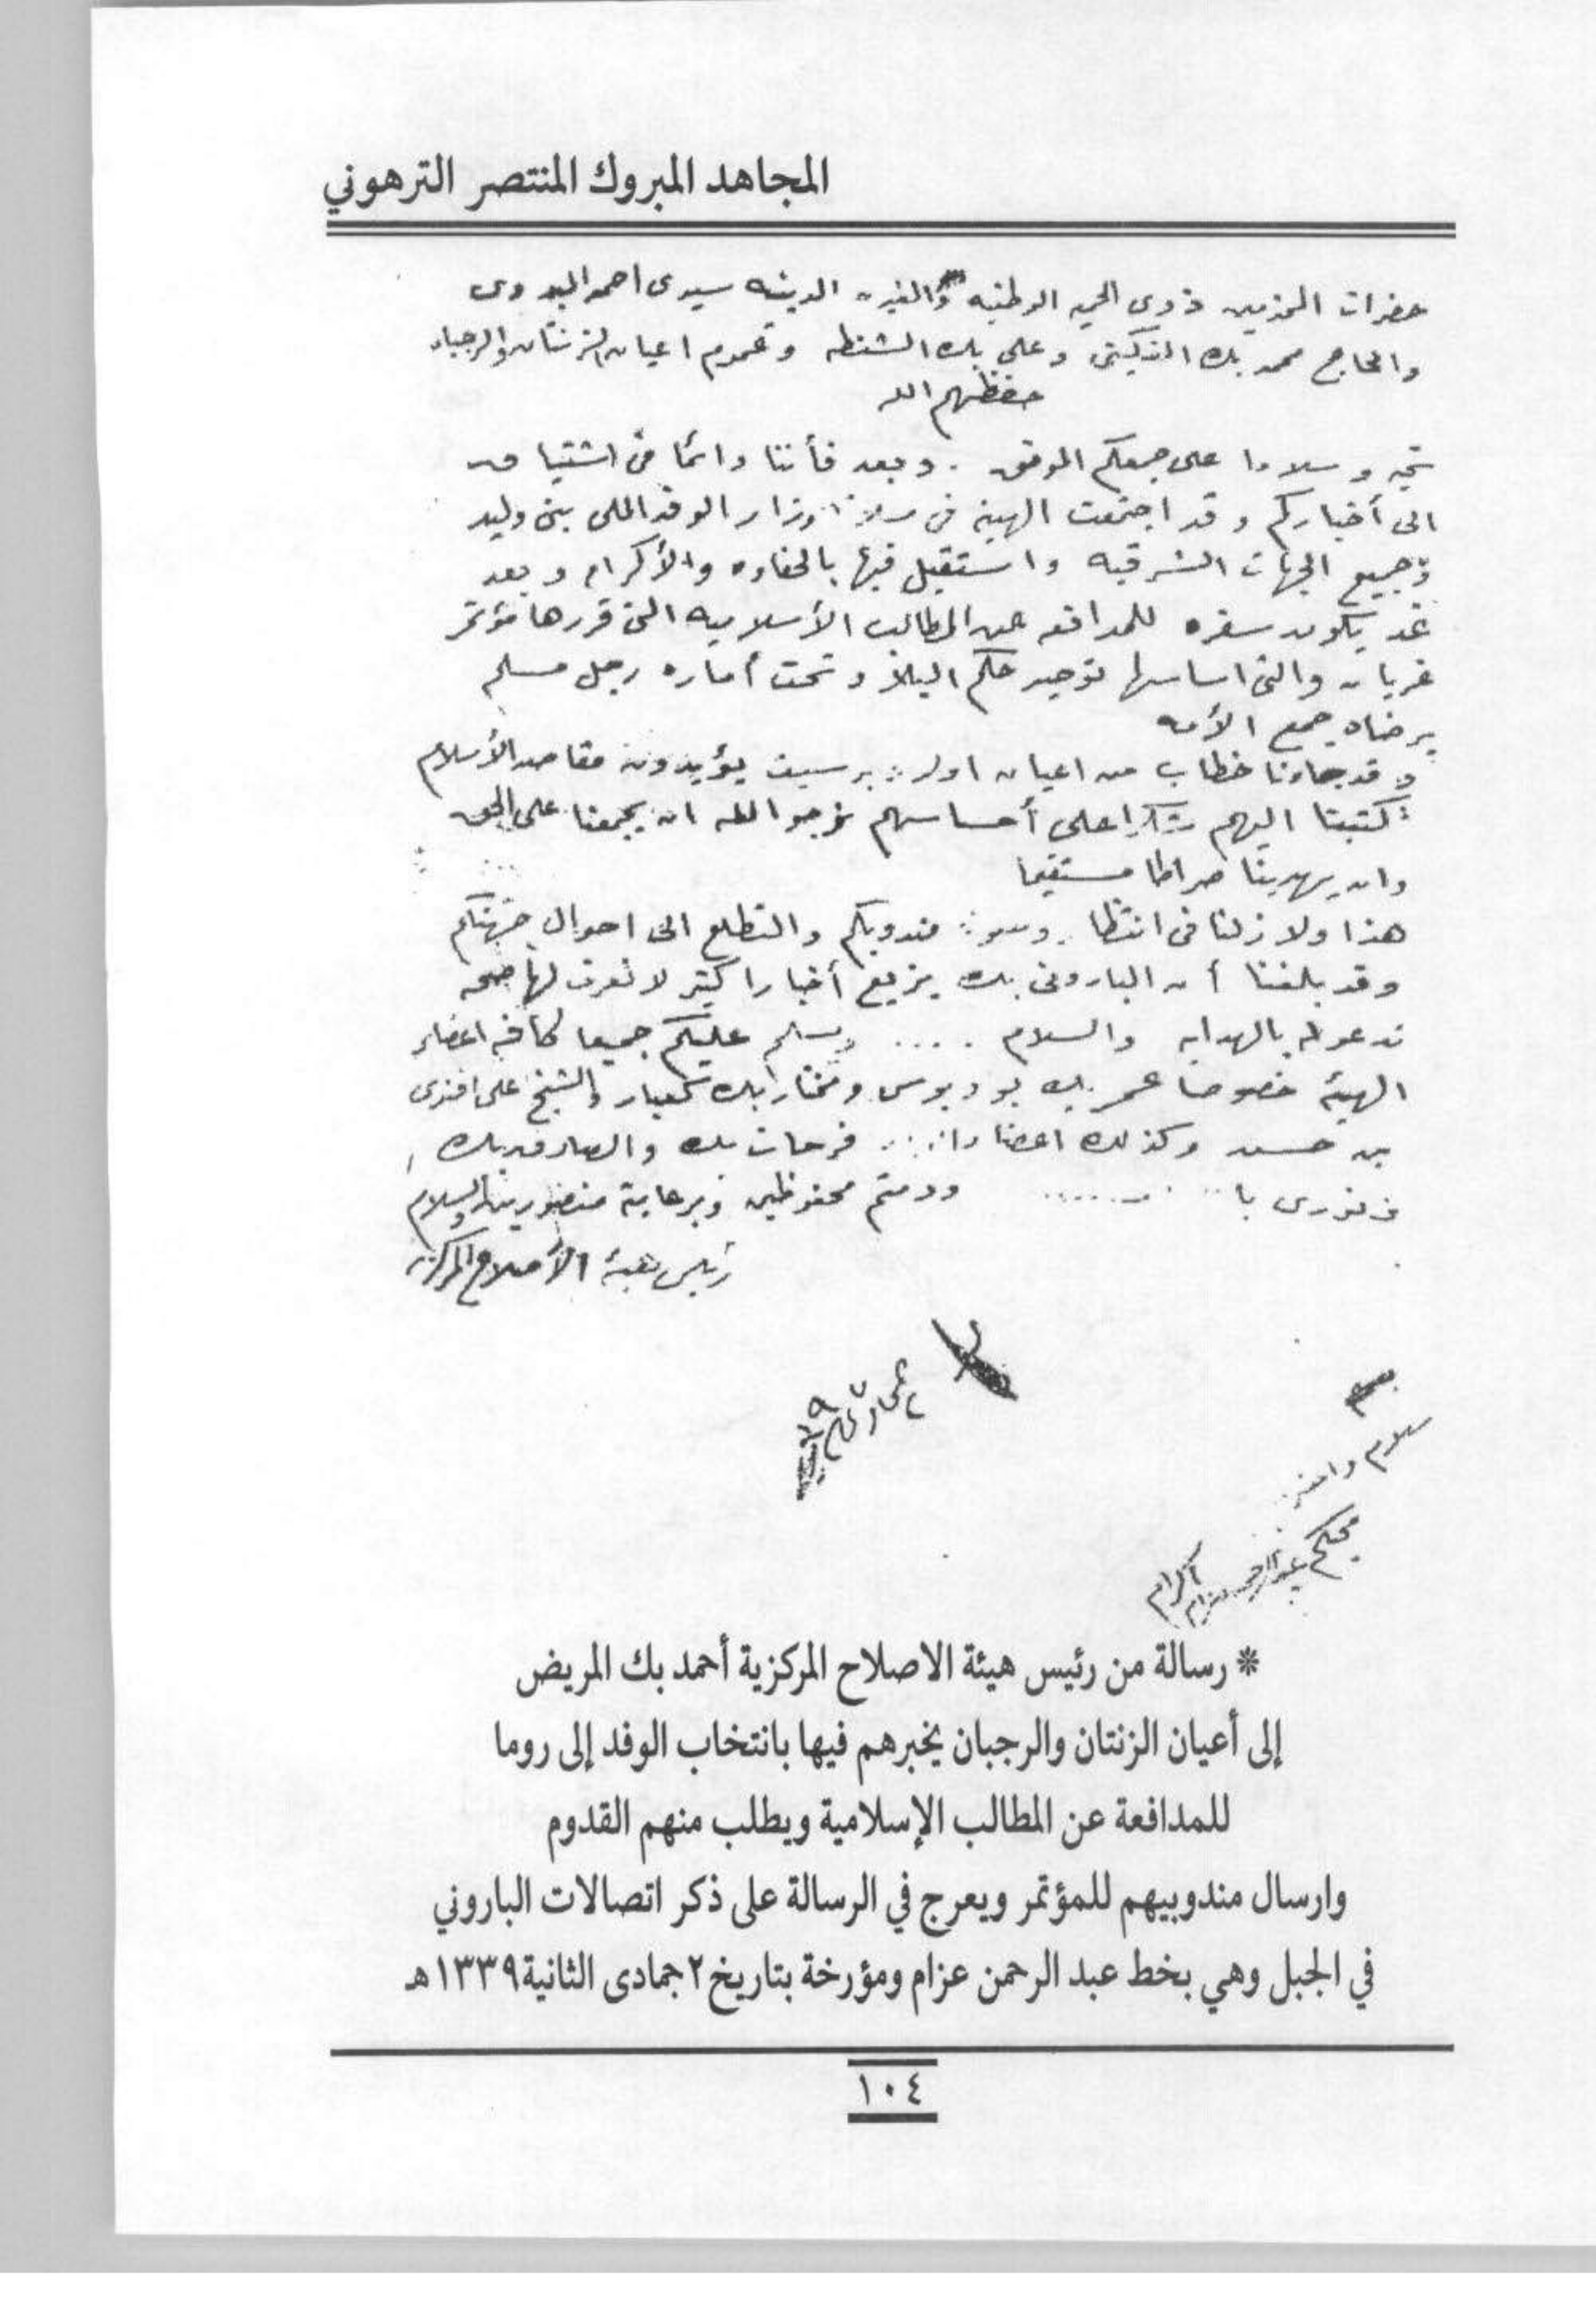 المجاهد المبروك المنتصر الترهوني
حضرات المحترمين ذوى الحميه الوطنيه والغيره الدينيه سيدى احمد البدوى
والحاج محمد بك وعلى بك الشنطه وعموم اعيان الزنتان والرجبان
حفظهم الله
تحيه وسلاما على جمعكم الموفق . وبعد فأننا دائما فى اشتياق
الى أخباركم وقد اجتمعت الهيئه فى وزار الوفد الملى بنى وليد
وجميع الجهات الشرقيه واستقبل فيها بالحفاوه والأكرام وبعد
غد يكون سفره للمدافعه عن المطالب الأسلاميه التى قررها مؤتمر
غريان والتى اساسها توحيد حكم البلاد تحت أماره رجل مسلم
يرضاه جمع الأمه
وقد جاءنا خطاب من اعيان اولاد بوسيف يؤيدون مقاصد الأسلام
كتبنا اليهم شكرا على أحساسهم نرجو الله ان يجمعنا على الحق
وان يهدينا صراطا مستقيما
هذا ولا زلنا فى انتظار مندوبكم والتطلع الى احوال جهتكم
وقد بلغنا أن البارونى بك يزيع أخبارا كثير لا نعرف لها صحه
ندعو له بالهدايه والسلام ..... ويسلم عليكم جميعا كافة اعضاء
الهيئة خصوصا عمر بك بودبوس ومختار بك كعبار والشيخ على افندى
بن حسن وكذلك اعضا فرحات بك والصادق بك
ودمتم محفوظين وبرعاية منصورين والسلام
رئيس هيئة الأصلاح المركزيه
سلام
محبكم عبد الرحمن عزام
* رسالة من رئيس هيئة الاصلاح المركزية أحمد بك المريض
إلى أعيان الزنتان والرجبان يخبرهم فيها بانتخاب الوفد إلى روما
للمدافعة عن المطالب الإسلامية ويطلب منهم القدوم
وارسال مندوبيهم للمؤتمر ويعرج في الرسالة على ذكر اتصالات الباروني
في الجبل وهي بخط عبد الرحمن عزام ومؤرخة بتاريخ ٢ جمادى الثانية ١٣٣٩هـ
١٠٤